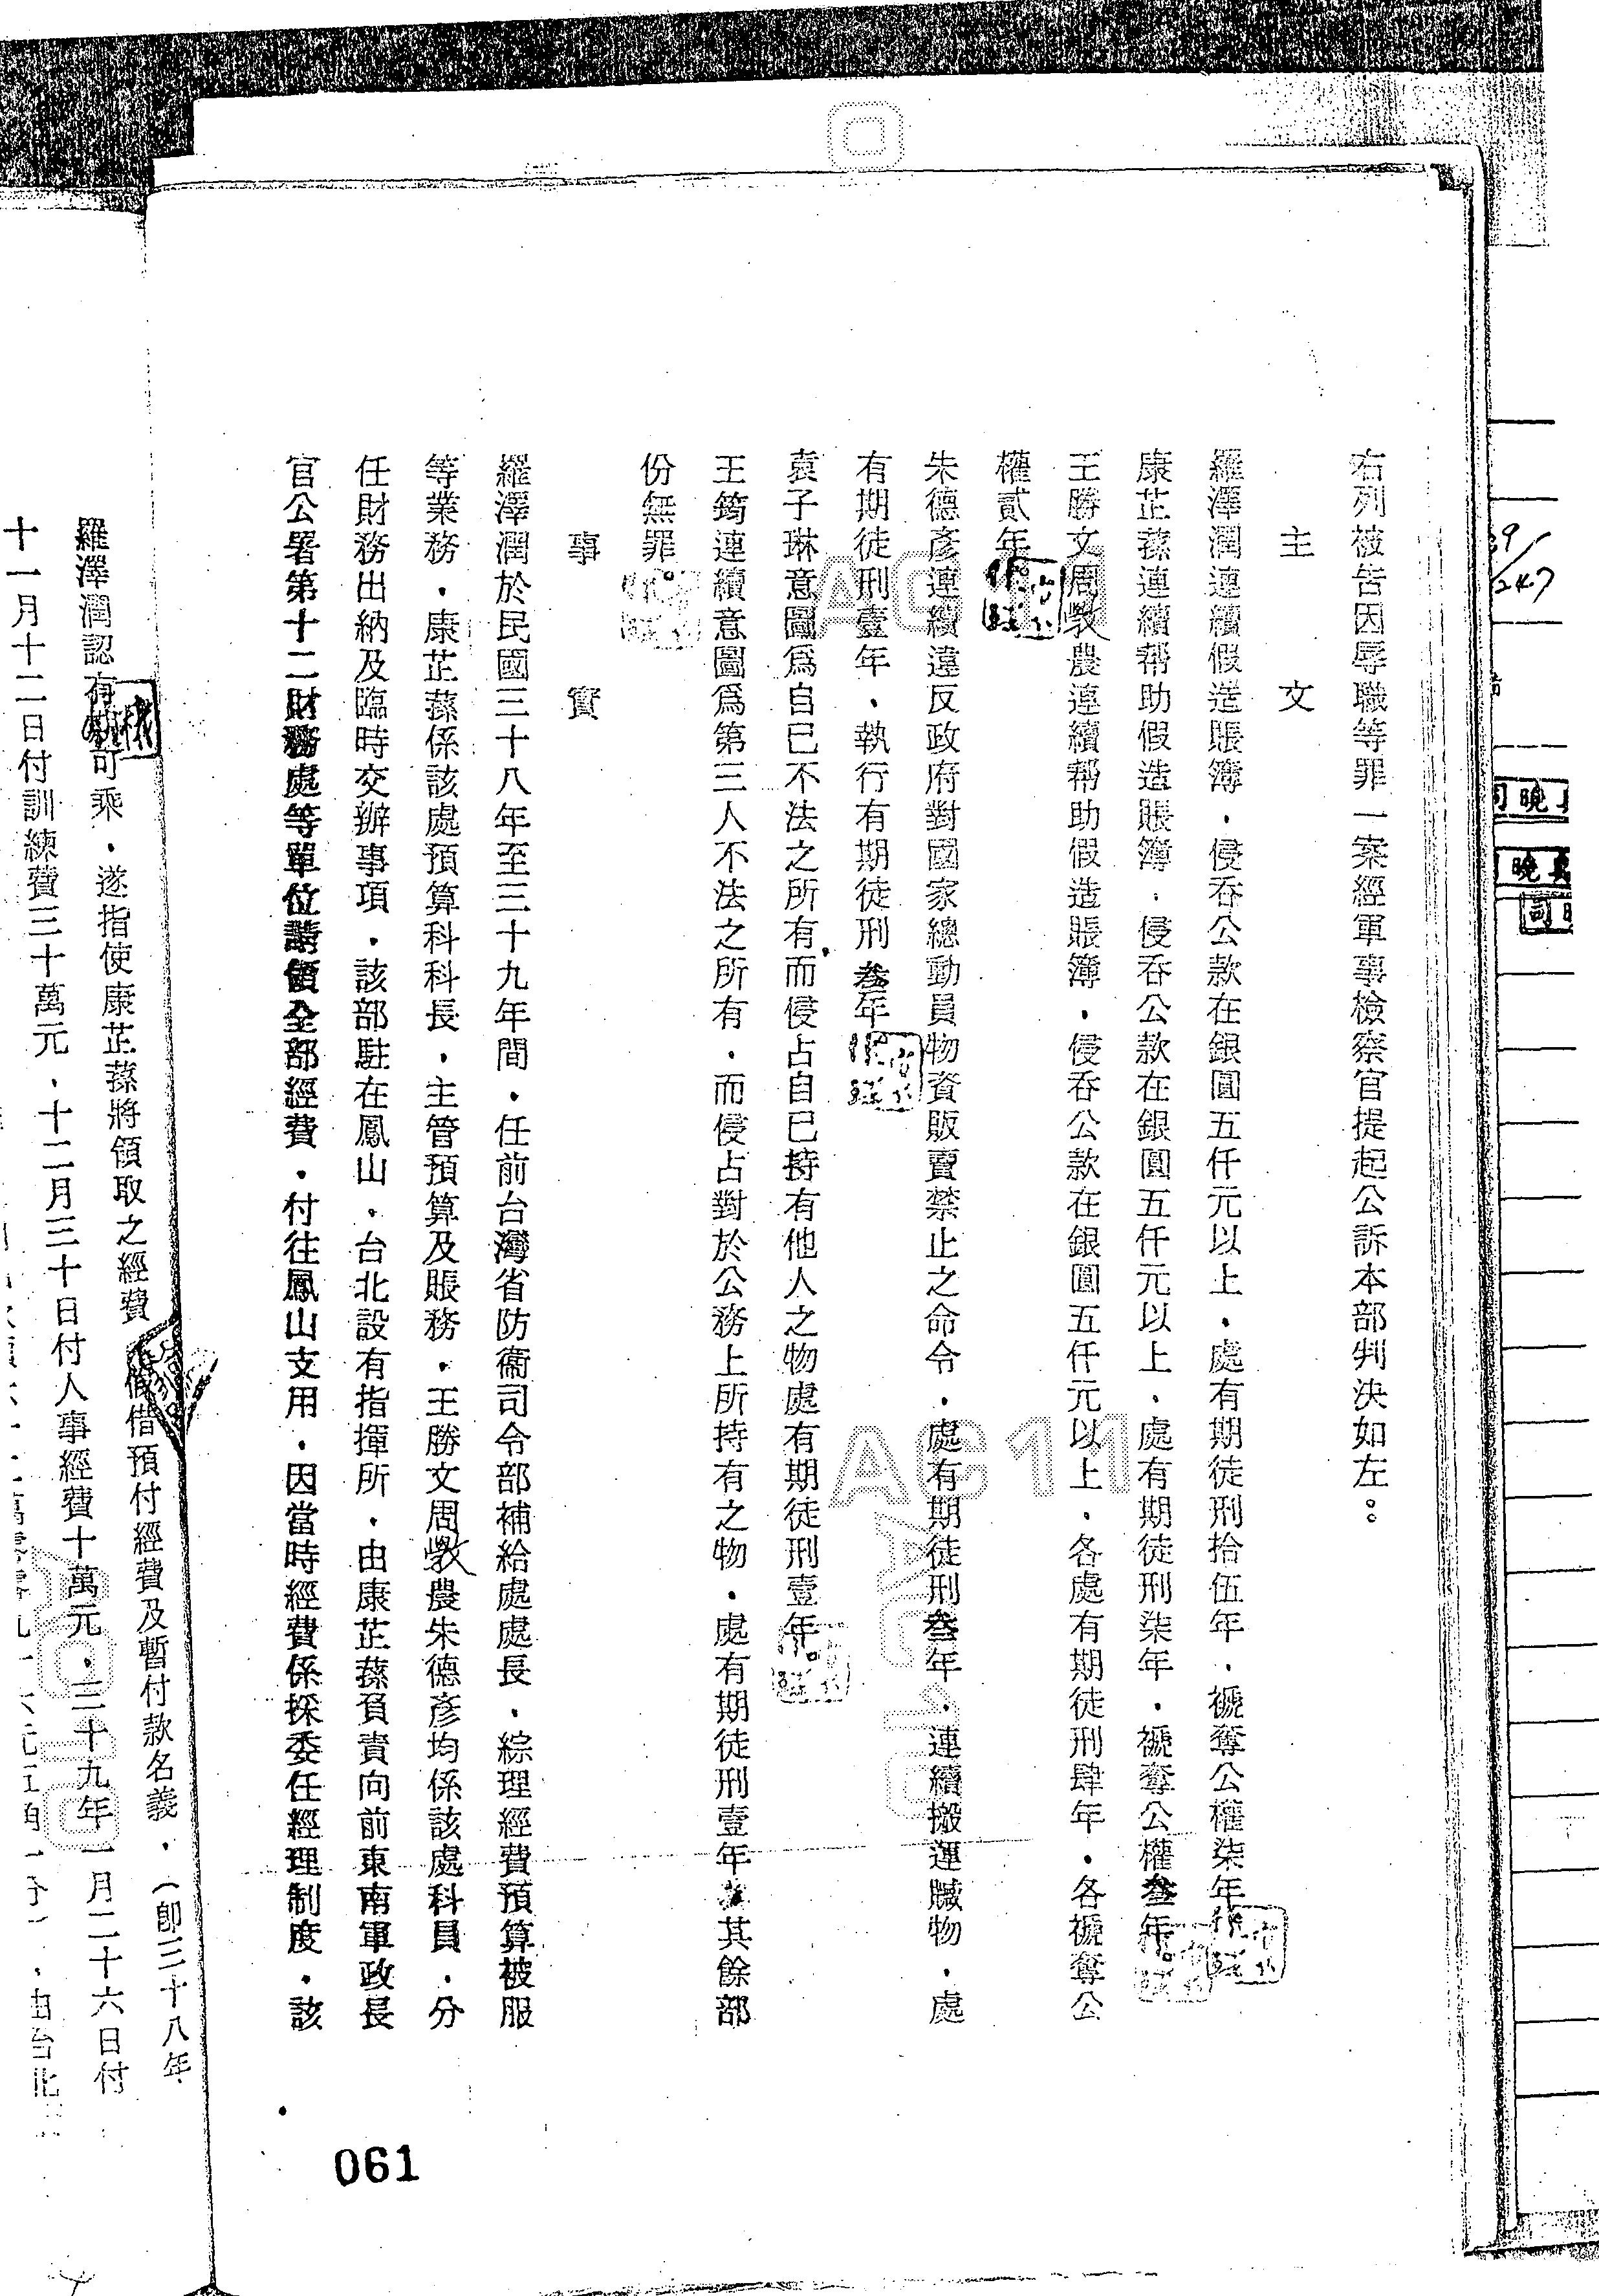 右列被告因辱職等罪一案經軍事檢察官提起公訴本部判決如左：
主文
羅澤潤連續假造賬簿．侵吞公款在銀圓五仟元以上．處有期徒刑拾伍年．褫奪公權柒年
康芷蓀連續帮助假造賬簿．侵吞公款在銀圓五仟元以上．處有期徒刑柒年．褫奪公權叁年
王勝文周敩農連續帮助假造賬簿．侵吞公款在銀圓五仟元以上．各處有期徒刑肆年．各褫奪公
權貳年
朱德彥連續違反政府對國家總動員物資販賣禁止之命令．處有期徒刑叁年．連續搬運贓物．處
有期徒刑壹年．執行有期徒刑叁年
袁子琳意圖爲自已不法之所有．而侵占自已持有他人之物處有期徒刑壹年
王筠連續意圖爲第三人不法之所有．而侵占對於公務上所持有之物．處有期徒刑壹年其餘部
份無罪
事實
羅澤潤於民國三十八年至三十九年間．任前台灣省防衞司令部補給處處長．綜理經費預算被服
等業務．康芷蓀係該處預算科科長．主管預算及賬務．王勝文周敩農朱德彥均係該處科員．分
任財務出納及臨時交辦事項．該部駐在鳳山．台北設有指揮所．由康芷蓀負責向前東南軍政長
官公署第十二財務處等單位請領全部經費．付往鳳山支用．因當時經費係採委任經理制度．該
061
羅澤潤認有機可乘．遂指使康芷蓀將領取之經費假借預付經費及暫付款名義．（卽三十八年
十一月十二日付訓練費三十萬元．十二月三十日付人事經費十萬元．三十九年一月二十六日付
AC11